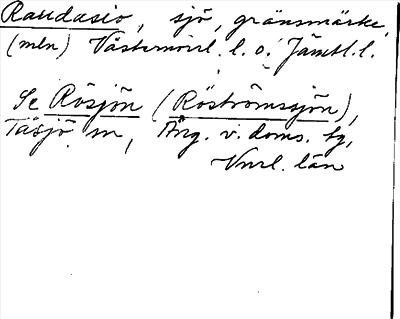 Raudasio, sjö, gränsmärke
(mln) Västernorrl. l. o. Jämtl. l.
Se Rösjön (Röströmssjön),
Tåsjö sn, Ång. v. doms. hg,
Vnrl. län